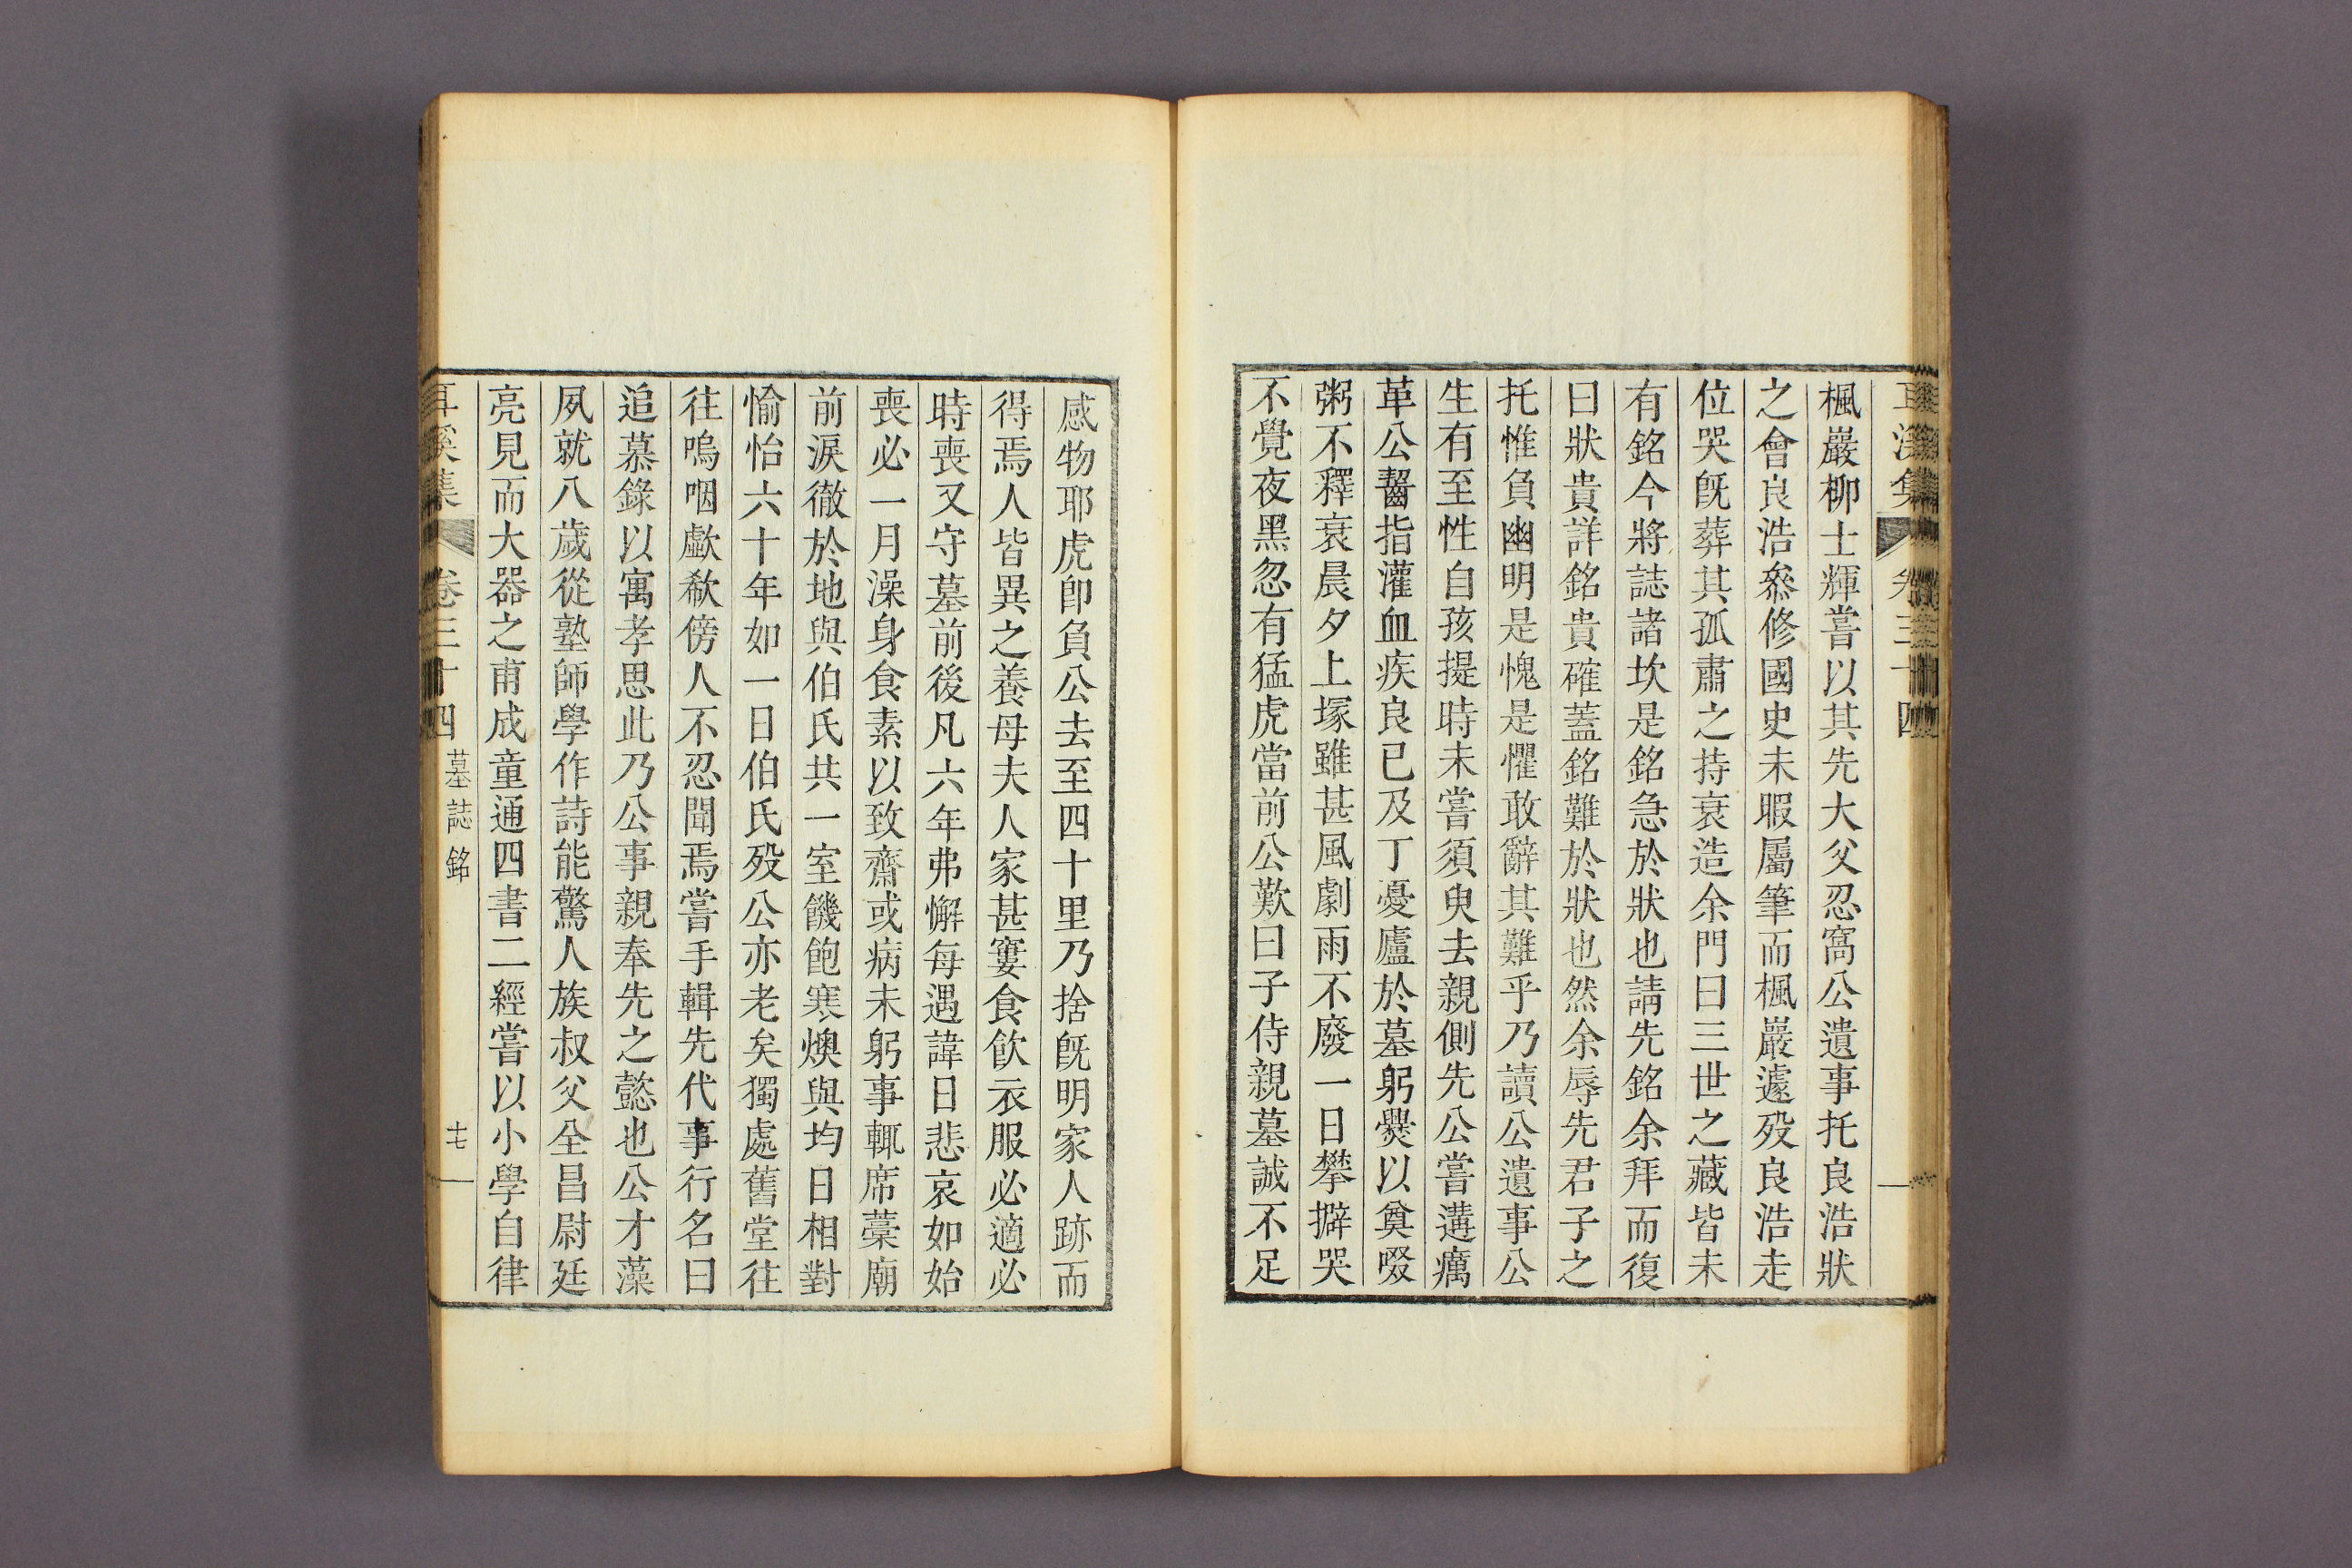 楓巖柳士輝嘗以其先大父忍窩公遺事托良浩狀
之會良浩叅修國史未暇屬筆而楓巖遽歿良浩走
位哭旣葬其孤肅之持衰造余門曰三世之藏皆未
有銘今將誌諸坎是銘急於狀也請先銘余拜而復
曰狀貴詳銘貴確蓋銘難於狀也然余辱先君子之
托惟負幽明是愧是懼敢辭其難乎乃讀公遺事公
生有至性自孩提時未嘗須臾去親側先公嘗遘癘
革公齧指灌血疾良已及丁憂廬於墓躬爨以奠啜
粥不釋衰晨夕上塚雖甚風劇雨不廢一日攀擗哭
不覺夜黑忽有猛虎當前公歎曰子侍親墓誠不足
感物耶虎卽負公去至四十里乃捨旣明家人跡而
得焉人皆異之養母夫人家甚窶食飮衣服必適必
時喪又守墓前後凡六年弗懈每遇諱日悲哀如始
喪必一月澡身食素以致齋或病未躬事輒席藁廟
前淚徹於地與伯氏共一室饑飽寒燠與均日相對
愉怡六十年如一日伯氏歿公亦老矣獨處舊堂往
往嗚咽歔欷傍人不忍聞焉嘗手輯先代事行名曰
追慕錄以寓孝思此乃公事親奉先之懿也公才藻
夙就八歲從塾師學作詩能驚人族叔父全昌尉廷
亮見而大器之甫成童通四書二經嘗以小學自律
耳溪集 卷三十四 墓誌銘 十七